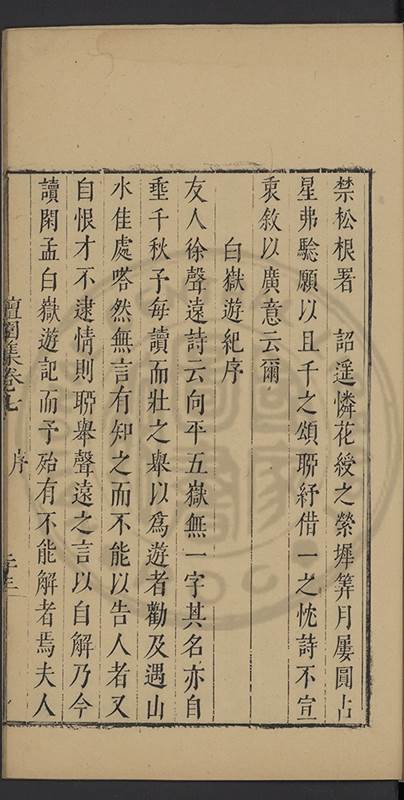 禁松根署　詔遥憐花綬之縈墀筭月屢圓占
星弗騐願以且千之頌聊紓借一之忱詩不宣
衷敘以廣意云爾
白嶽遊紀序
友人徐聲遠詩云向平五嶽無一字其名亦自
垂千秋予每讀而壯之舉以爲遊者勸及遇山
水佳處嗒然無言有知之而不能以告人者又
自恨才不逮情則聊舉聲遠之言以自解乃今
讀閑孟白嶽遊記而予殆有不能解者焉夫人
檀園集卷七　序